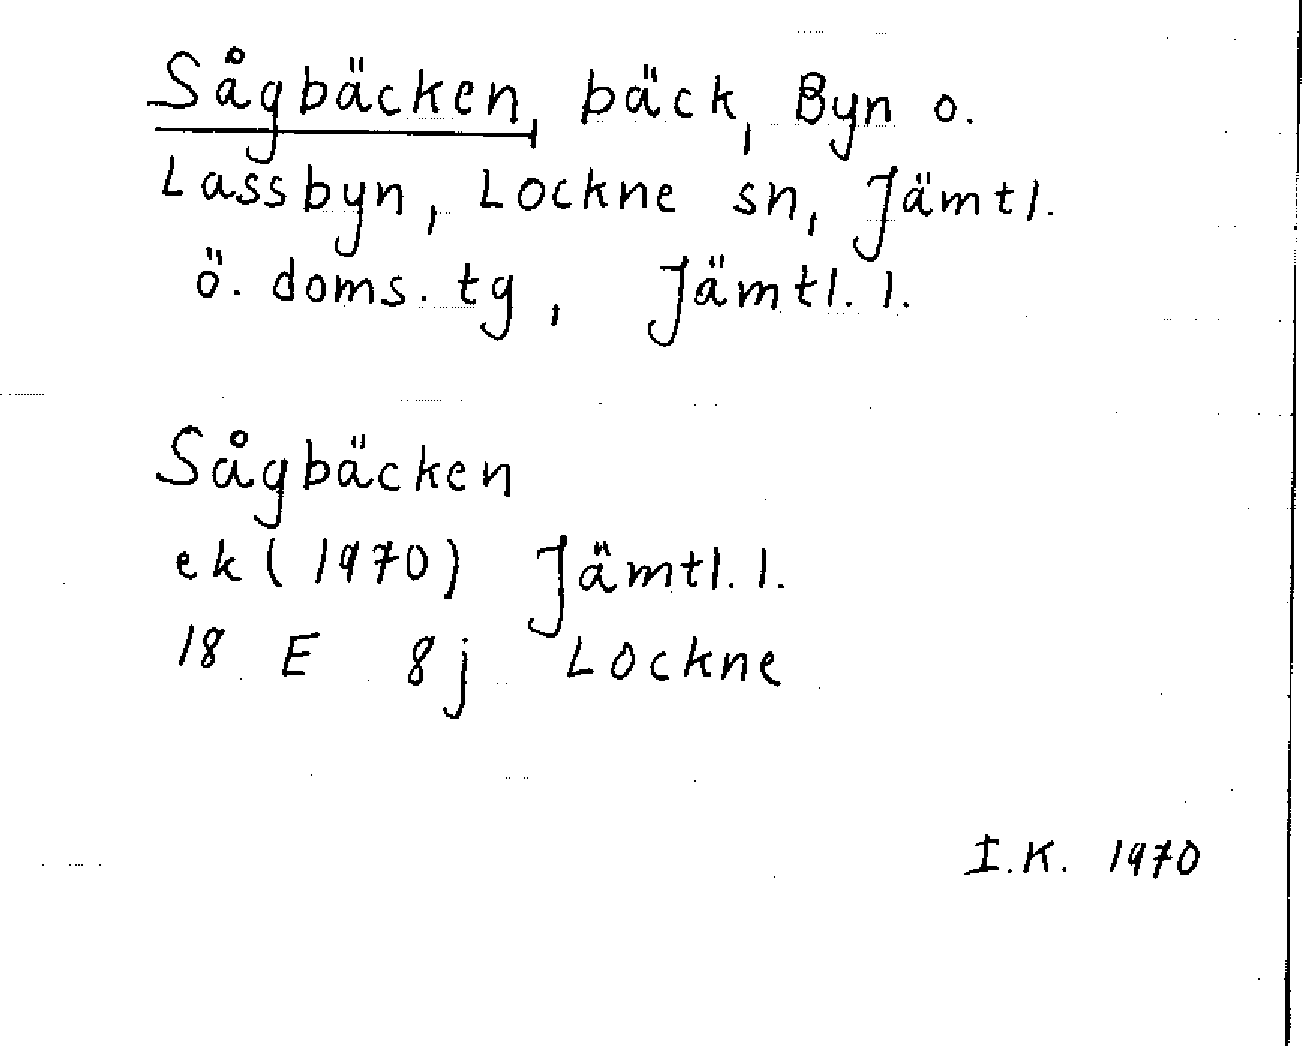 Sågbäcken, bäck, Byn o.
Lassbyn, Lockne sn, Jämtl.
ö. doms. tg, Jämtl. l.
Sågbäcken
ek (1970) Jämtl. l.
18 E 8j Lockne
I.K. 1970